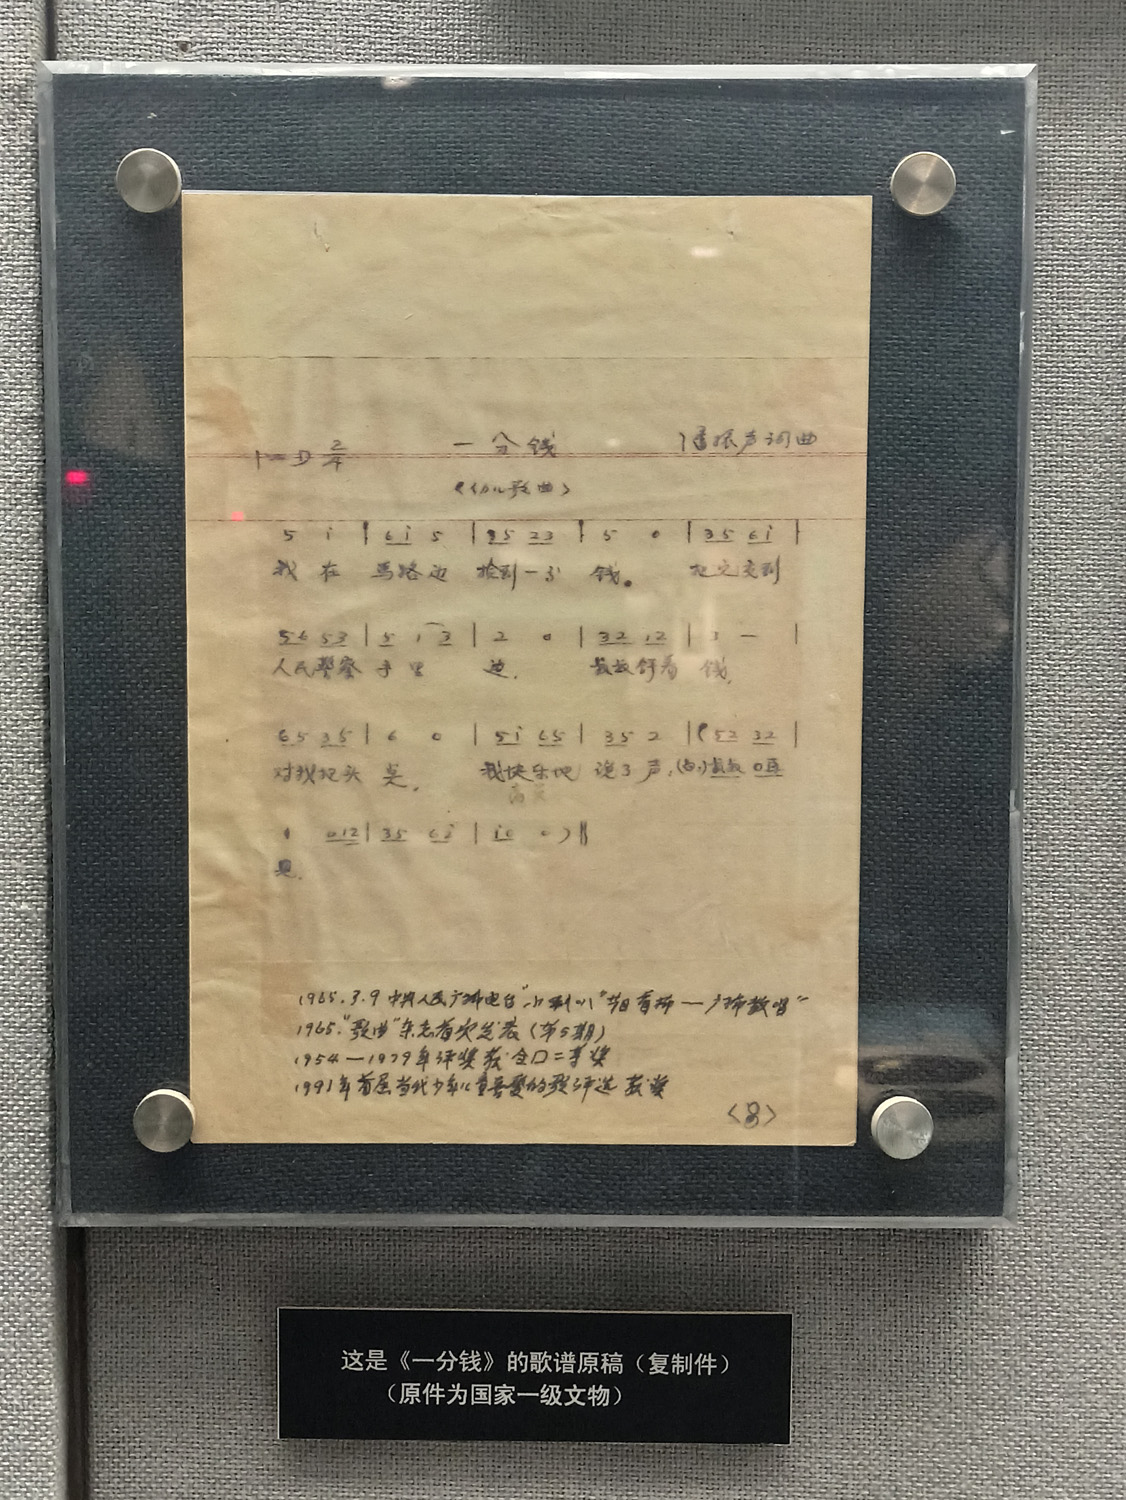 1=D 2/4 一分钱 潘振声词曲
《幼儿歌曲》
5 i | 6i 5 | 35 23 | 5 0 | 35 6i |
我在 马路边 捡到一分 钱。 把它交到
56 53 | 5 1 3 | 2 0 | 32 12 | 3 — |
人民警察 手里 边. 叔叔拿着 钱,
65 35 | 6 0 | 5i 65 | 35 2 | (52 32 |
对我把头 点. 我快乐地 说了声,(白)叔叔 0再
高兴
1 012 | 35 6i | i0 0 ) ‖
见.
1965.3.9 中央人民广播电台"小喇叭"节目首播—广播教唱"
1965."歌曲"杂志首次发表(第5期)
1954—1979年评奖获全口二等奖
1991年首届当代少年儿童喜爱的歌评选获奖
<8>
这是《一分钱》的歌谱原稿(复制件)
(原件为国家一级文物)